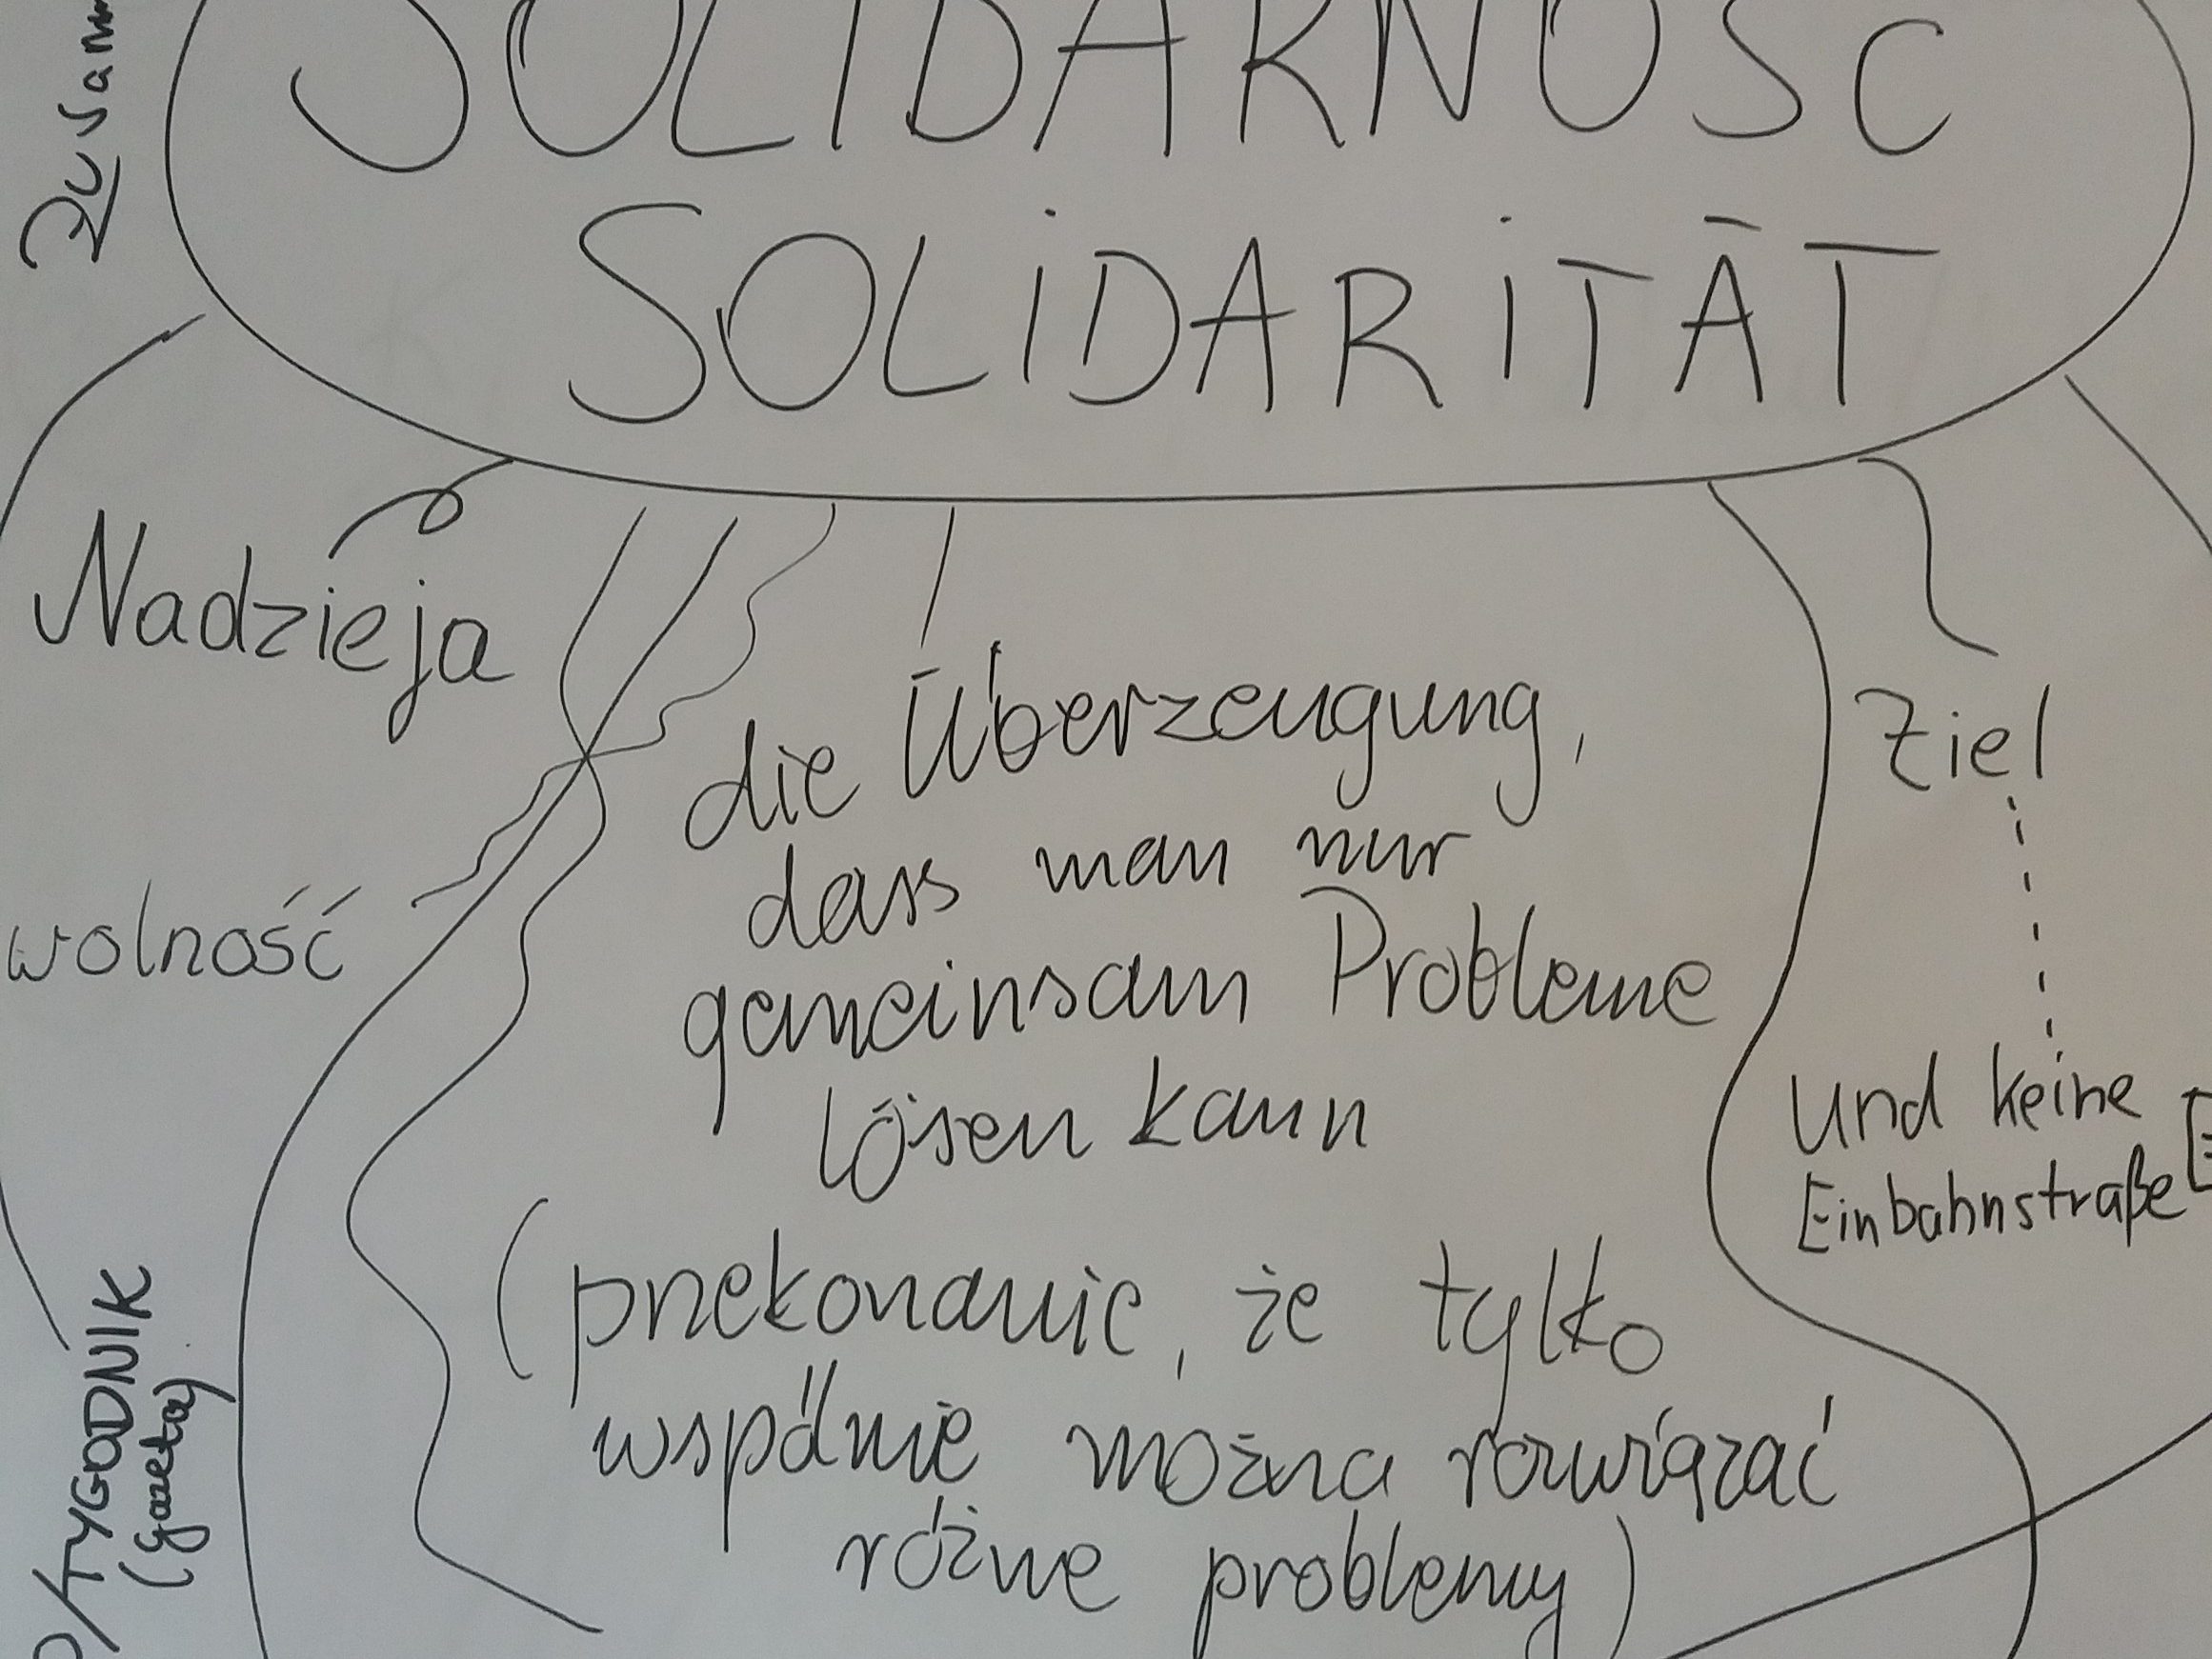 SOLIDARNOŚĆ
SOLIDARITÄT
Nadzieja
wolność
die Überzeugung,
dass man nur
gemeinsam Probleme
lösen kann
(przekonanie, że tylko
wspólnie można rozwiązać
różne problemy)
Ziel
und keine
Einbahnstraße
TYGODNIK
(gazeta)